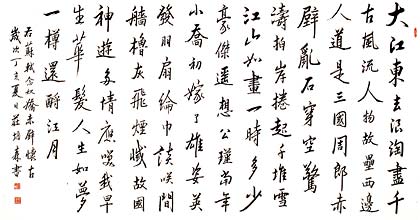 大江東去浪淘盡千
古風流人物故壘西邊
人道是三國周郎赤
壁亂石穿空驚
濤拍岸捲起千堆雪
江山如畫一時多少
豪傑遙想公瑾當年
小喬初嫁了雄姿英
發羽扇綸巾談笑間
檣櫓灰飛煙滅故國
神遊多情應笑我早
生華髮人生如夢
一樽還酹江月
右蘇軾念奴嬌赤壁懷古
歲次丁亥夏日莊培森書